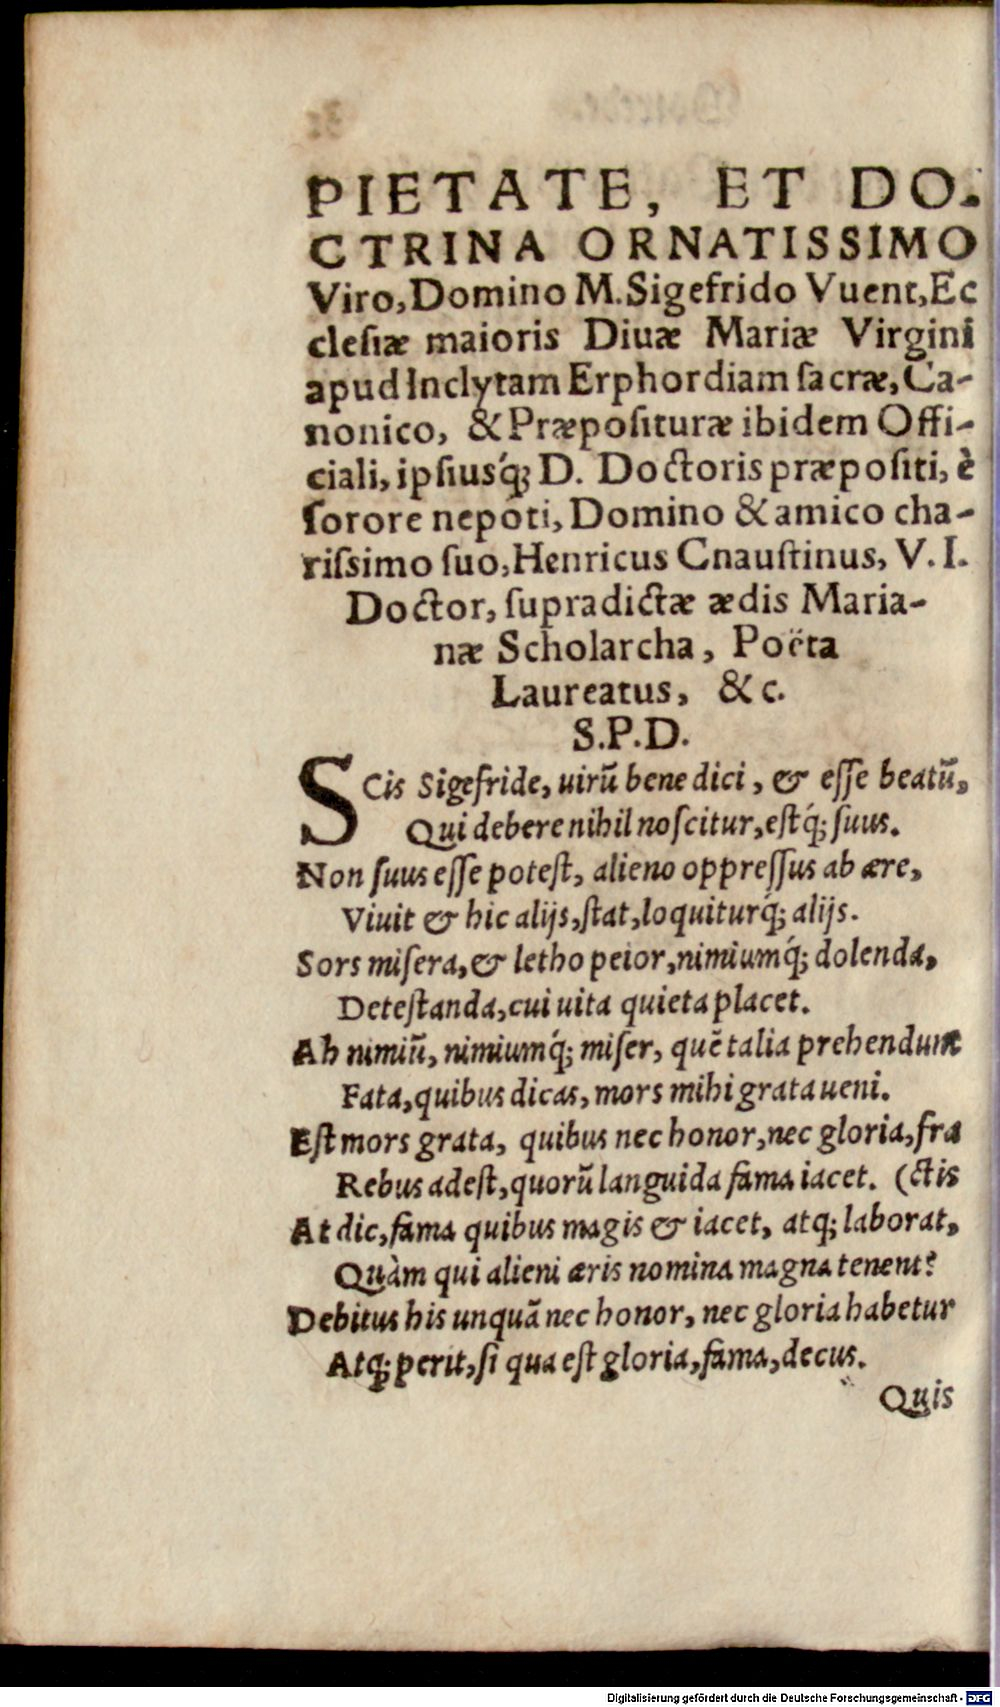 PIETATE, ET DO-
CTRINA ORNATISSIMO
Viro, Domino M. Sigefrido Vuent, Ec
clesiæ maioris Diuæ Mariæ Virgini
apud Inclytam Erphordiam sacræ, Ca-
nonico, & Præposituræ ibidem Offi-
ciali, ipsiusq́; D. Doctoris præpositi, è
sorore nepoti, Domino & amico cha-
rissimo suo, Henricus Cnaustinus, V. I.
Doctor, supradictæ ædis Maria-
næ Scholarcha, Poëta
Laureatus, &c.
S.P.D.
SCis Sigefride, uirū bene dici, & esse beatū,
Qui debere nihil noscitur, estq́; suus.
Non suus esse potest, alieno oppressus ab ære,
Viuit & hic alijs, stat, loquiturq́; alijs.
Sors misera, & letho peior, nimiumq́; dolenda,
Detestanda, cui uita quieta placet.
Ah nimiū, nimiumq́; miser, quē talia prehendunt
Fata, quibus dicas, mors mihi grata ueni.
Est mors grata, quibus nec honor, nec gloria, fra
Rebus adest, quorū languida fama iacet. (ctis
At dic, fama quibus magis & iacet, atq; laborat,
Quàm qui alieni æris nomina magna tenent?
Debitus his unquā nec honor, nec gloria habetur
Atq; perit, si qua est gloria, fama, decus.
Quis
Digitalisierung gefördert durch die Deutsche Forschungsgemeinschaft - DFG